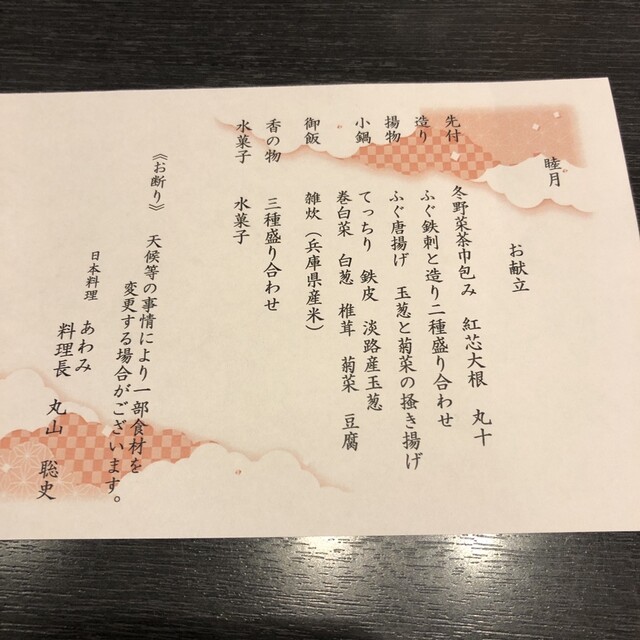 睦月
お献立
先付 冬野菜茶巾包み 紅芯大根 丸十
造り ふぐ鉄刺と造り二種盛り合わせ
揚物 ふぐ唐揚げ 玉葱と菊菜の掻き揚げ
小鍋 てっちり 鉄皮 淡路産玉葱
巻白菜 白葱 椎茸 菊菜 豆腐
御飯 雑炊（兵庫県産米）
香の物 三種盛り合わせ
水菓子 水菓子
《お断り》 天候等の事情により一部食材を
変更する場合がございます。
日本料理 あわみ
料理長 丸山 聡史